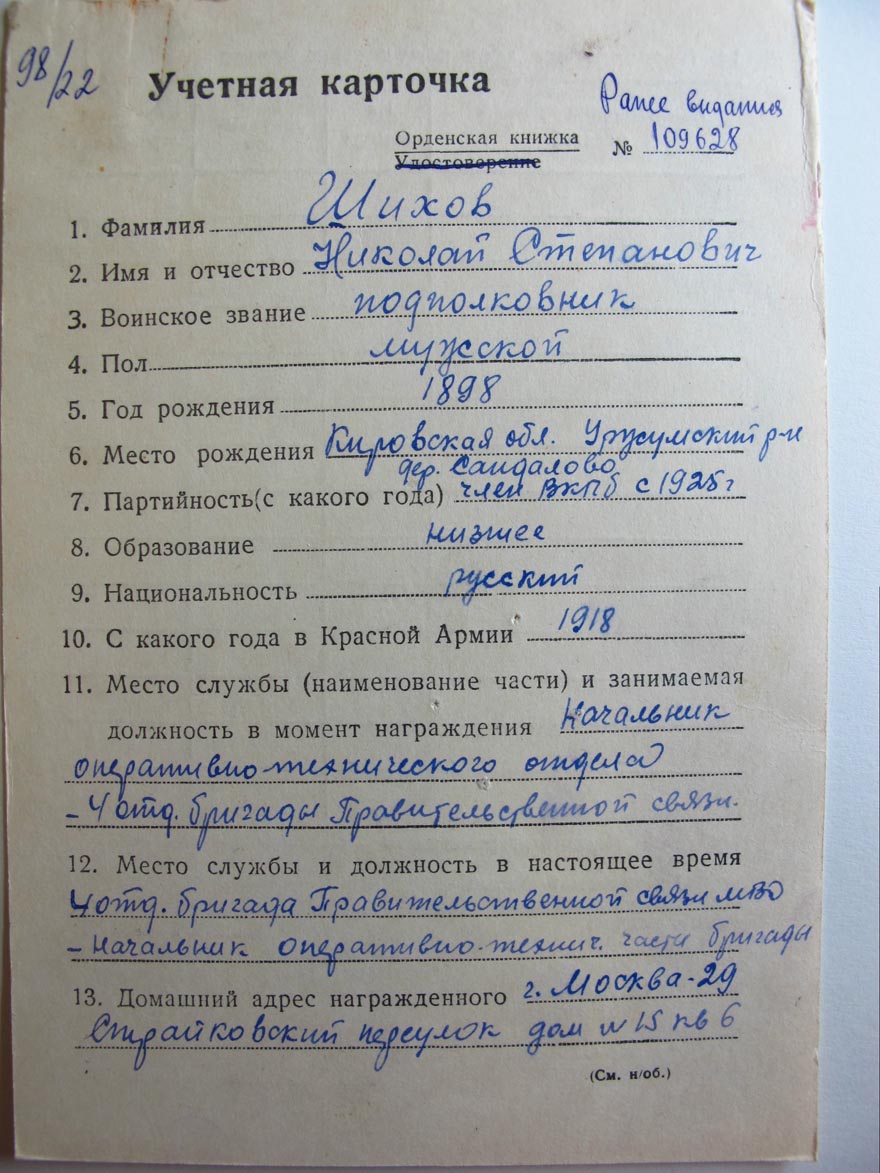 98/22
Учетная карточка
Ранее видання
Орденская книжка № 109628
Удостоверение
1. Фамилия Шихов
2. Имя и отчество Николай Степанович
3. Воинское звание подполковник
4. Пол мужской
5. Год рождения 1898
6. Место рождения Кировская обл. Уржумский р-н
дер. Сандалово
7. Партийность(с какого года) член ВКПб с 1925г
8. Образование низшее
9. Национальность русский
10. С какого года в Красной Армии 1918
11. Место службы (наименование части) и занимаемая
должность в момент награждения Начальник
оперативно-технического отдела
- 4 отд. бригады Правительственной связи.
12. Место службы и должность в настоящее время
4 отд. бригада Правительственной связи МВО
- Начальник оперативно-технич. части бригады
13. Домашний адрес награжденного г. Москва-29
переулок дом № 15 кв 6
(См. н/об.)